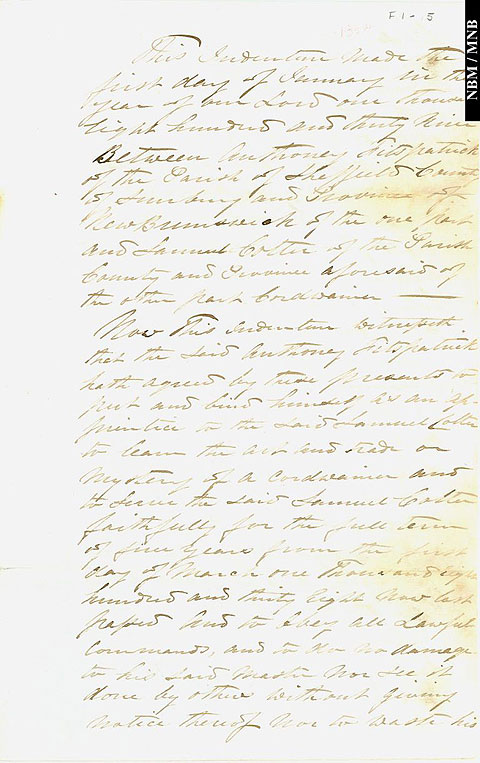 F1-15
NBM / MNB
This Indenture Made the
first day of January in the
Year of our Lord one thousand
Eight hundred and thirty Nine
Between Anthoney Fitzpatrick
of the Parish of Sheffield County
of Sunbury and Province of
New Brunswick of the one part
and Samuel Cotter of the Parish
County and Province aforesaid of
the other part Cordwainer
Now This Indenture witnesseth
that the Said Anthoney Fitzpatrick
hath agreed by these presents to
put and bind himself as an ap-
prentice to the Said Samuel Cotter
to learn the art and trade or
Mystery of a Cordwainer and
to Serve the said Samuel Cotter
faithfully for the full term
of five Years from the first
day of March one Thousand eight
hundred and thirty Eight Now last
passed And to obey all Lawful
Commands, and to do no damage
to his said Master Nor See it
done by others without giving
notice thereof Nor to waste his